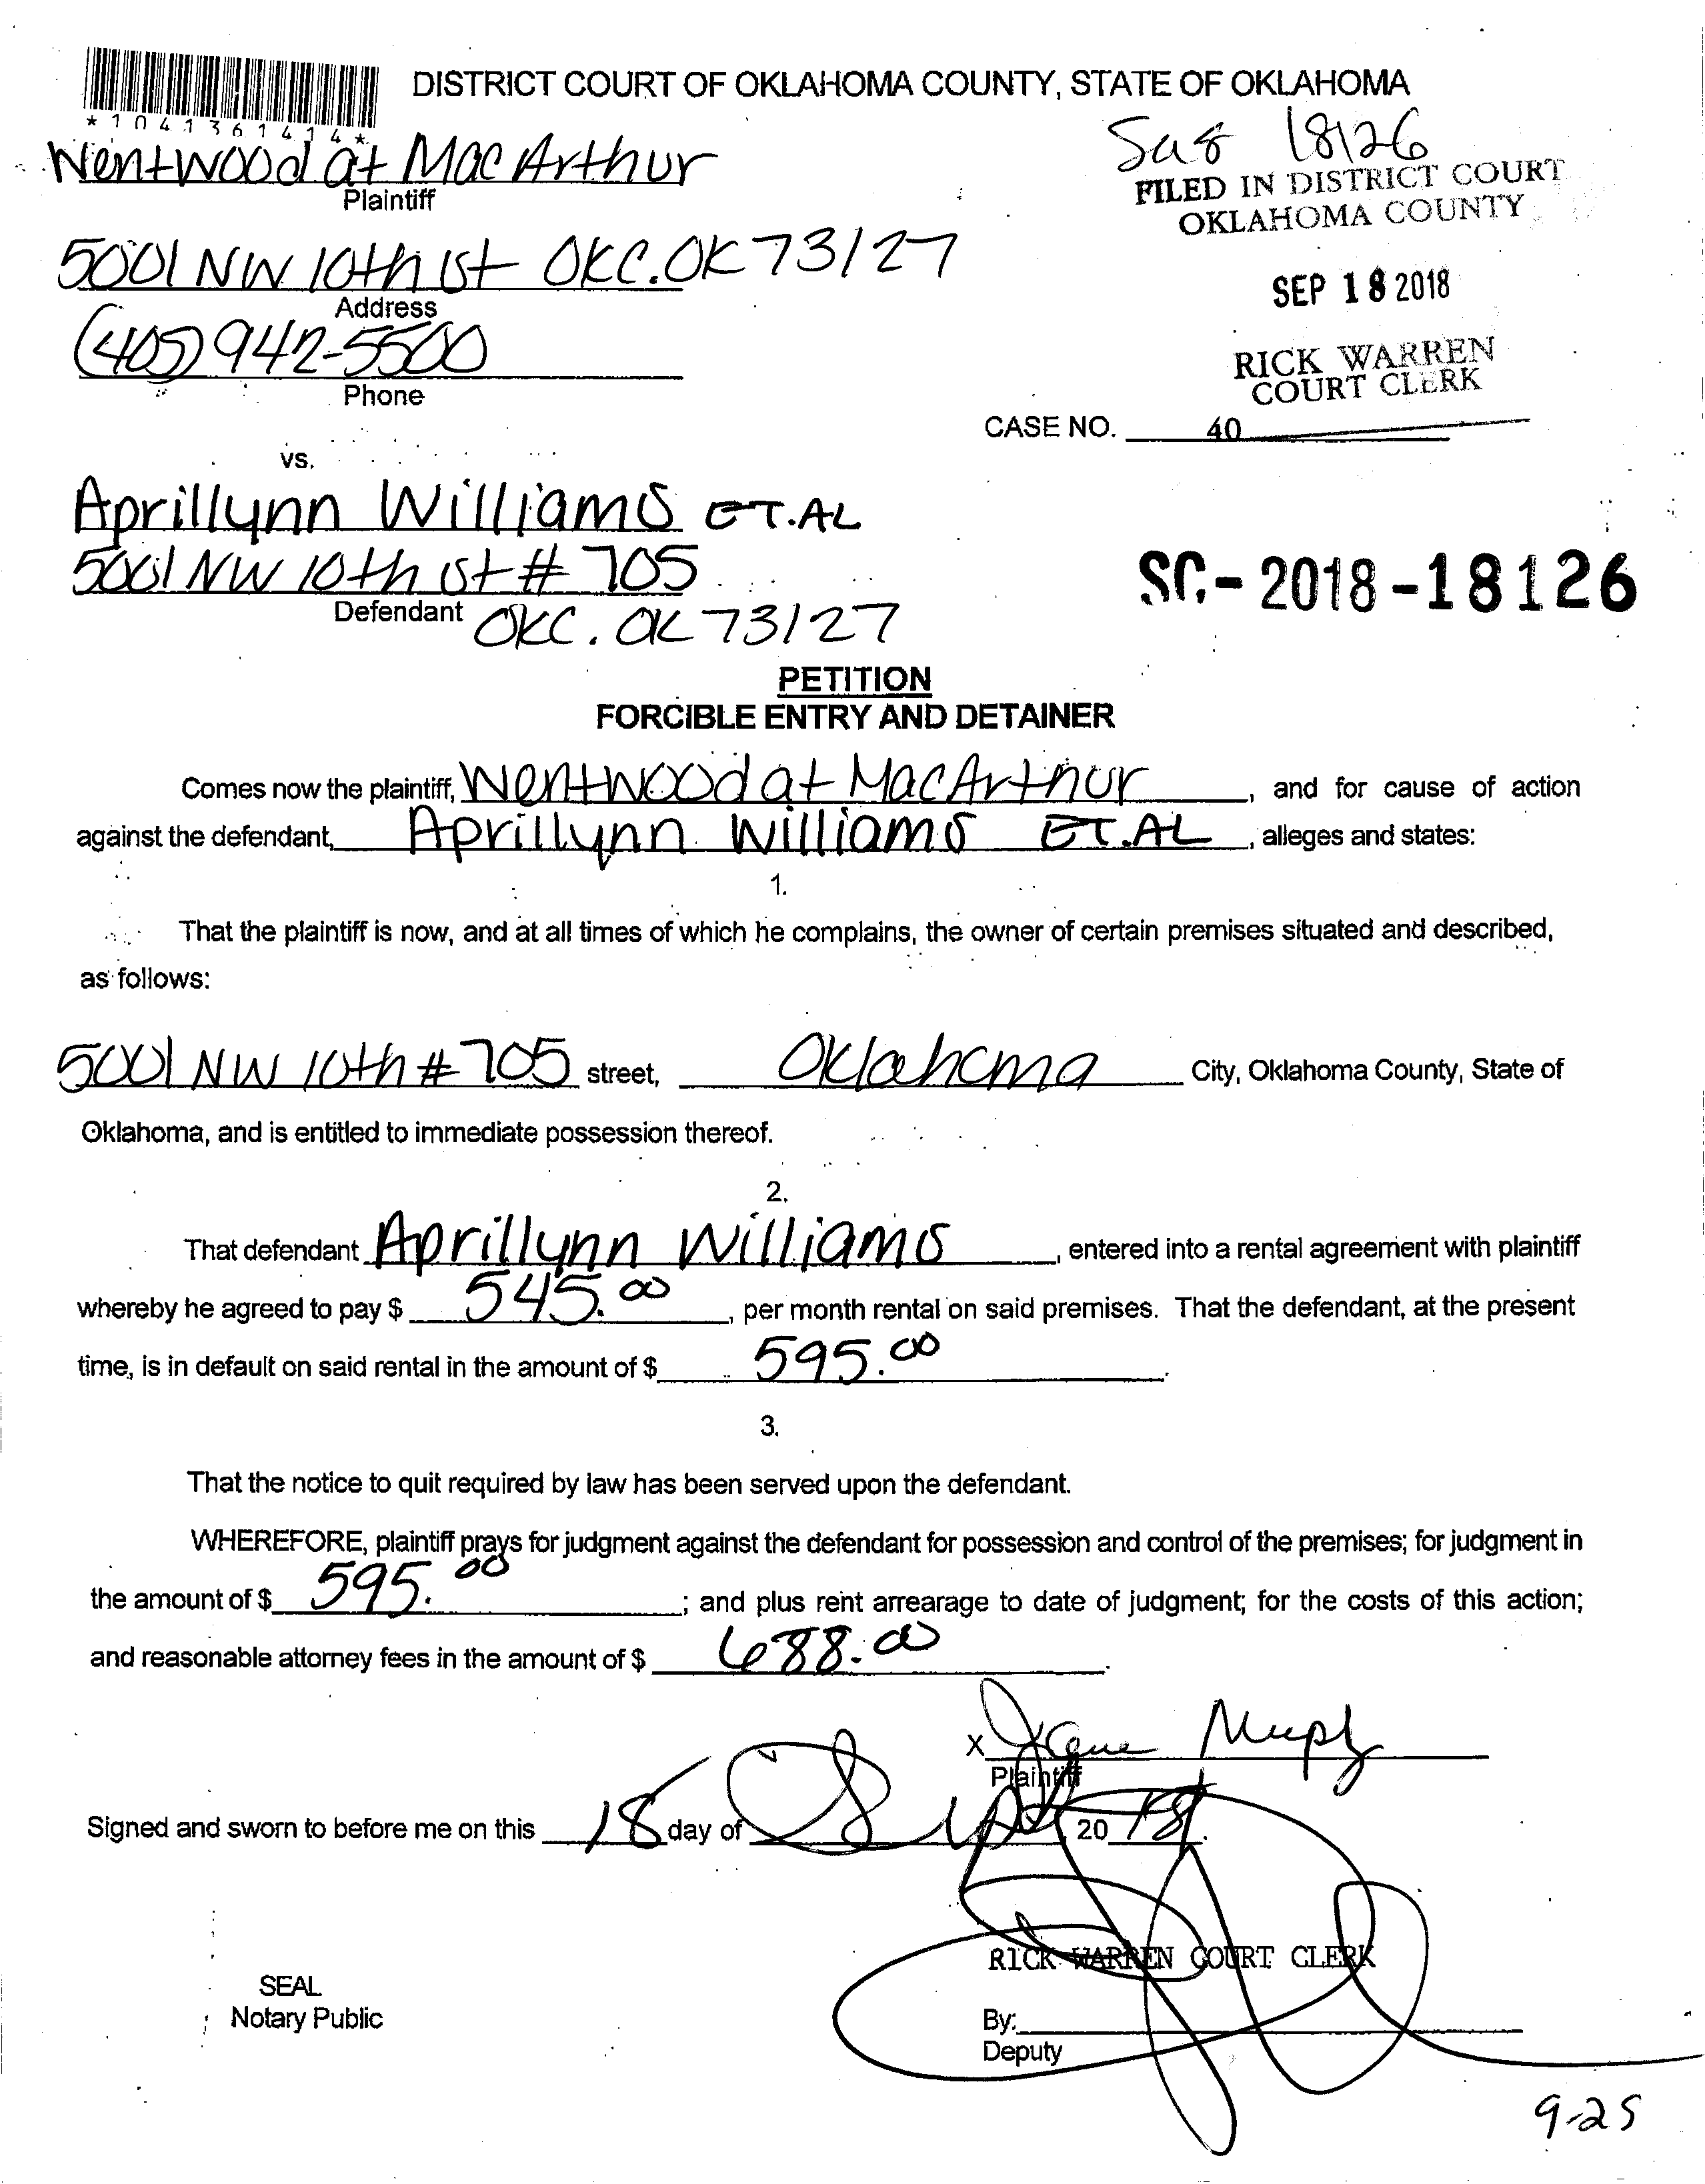 DISTRICT COURT OF OKLAHOMA COUNTY, STATE OF OKLAHOMA
*1041361414*
18126
Wentwood at MacArthur
Plaintiff
FILED IN DISTRICT COURT
OKLAHOMA COUNTY
5001 NW 10th st OKC. OK 73127
Address
SEP 18 2018
(405) 942-5500
Phone
RICK WARREN
COURT CLERK
CASE NO. 40
vs.
Aprillynn Williams ET.AL
5001 NW 10th st # 705
Defendant OKC. OK 73127
SC-2018-18126
PETITION
FORCIBLE ENTRY AND DETAINER
Comes now the plaintiff, Wentwood at MacArthur, and for cause of action
against the defendant, Aprillynn Williams ET.AL, alleges and states:
1.
That the plaintiff is now, and at all times of which he complains, the owner of certain premises situated and described,
as follows:
5001 NW 10th # 705 street, Oklahoma City, Oklahoma County, State of
Oklahoma, and is entitled to immediate possession thereof.
2.
That defendant Aprillynn Williams, entered into a rental agreement with plaintiff
whereby he agreed to pay $ 545.00, per month rental on said premises. That the defendant, at the present
time, is in default on said rental in the amount of $ 595.00.
3.
That the notice to quit required by law has been served upon the defendant.
WHEREFORE, plaintiff prays for judgment against the defendant for possession and control of the premises; for judgment in
the amount of $ 595.00; and plus rent arrearage to date of judgment; for the costs of this action;
and reasonable attorney fees in the amount of $ 688.00.
X Murphy
Plaintiff
Signed and sworn to before me on this 18 day of Sept 20 18.
RICK WARREN COURT CLERK
SEAL
Notary Public
By:
Deputy
9-25